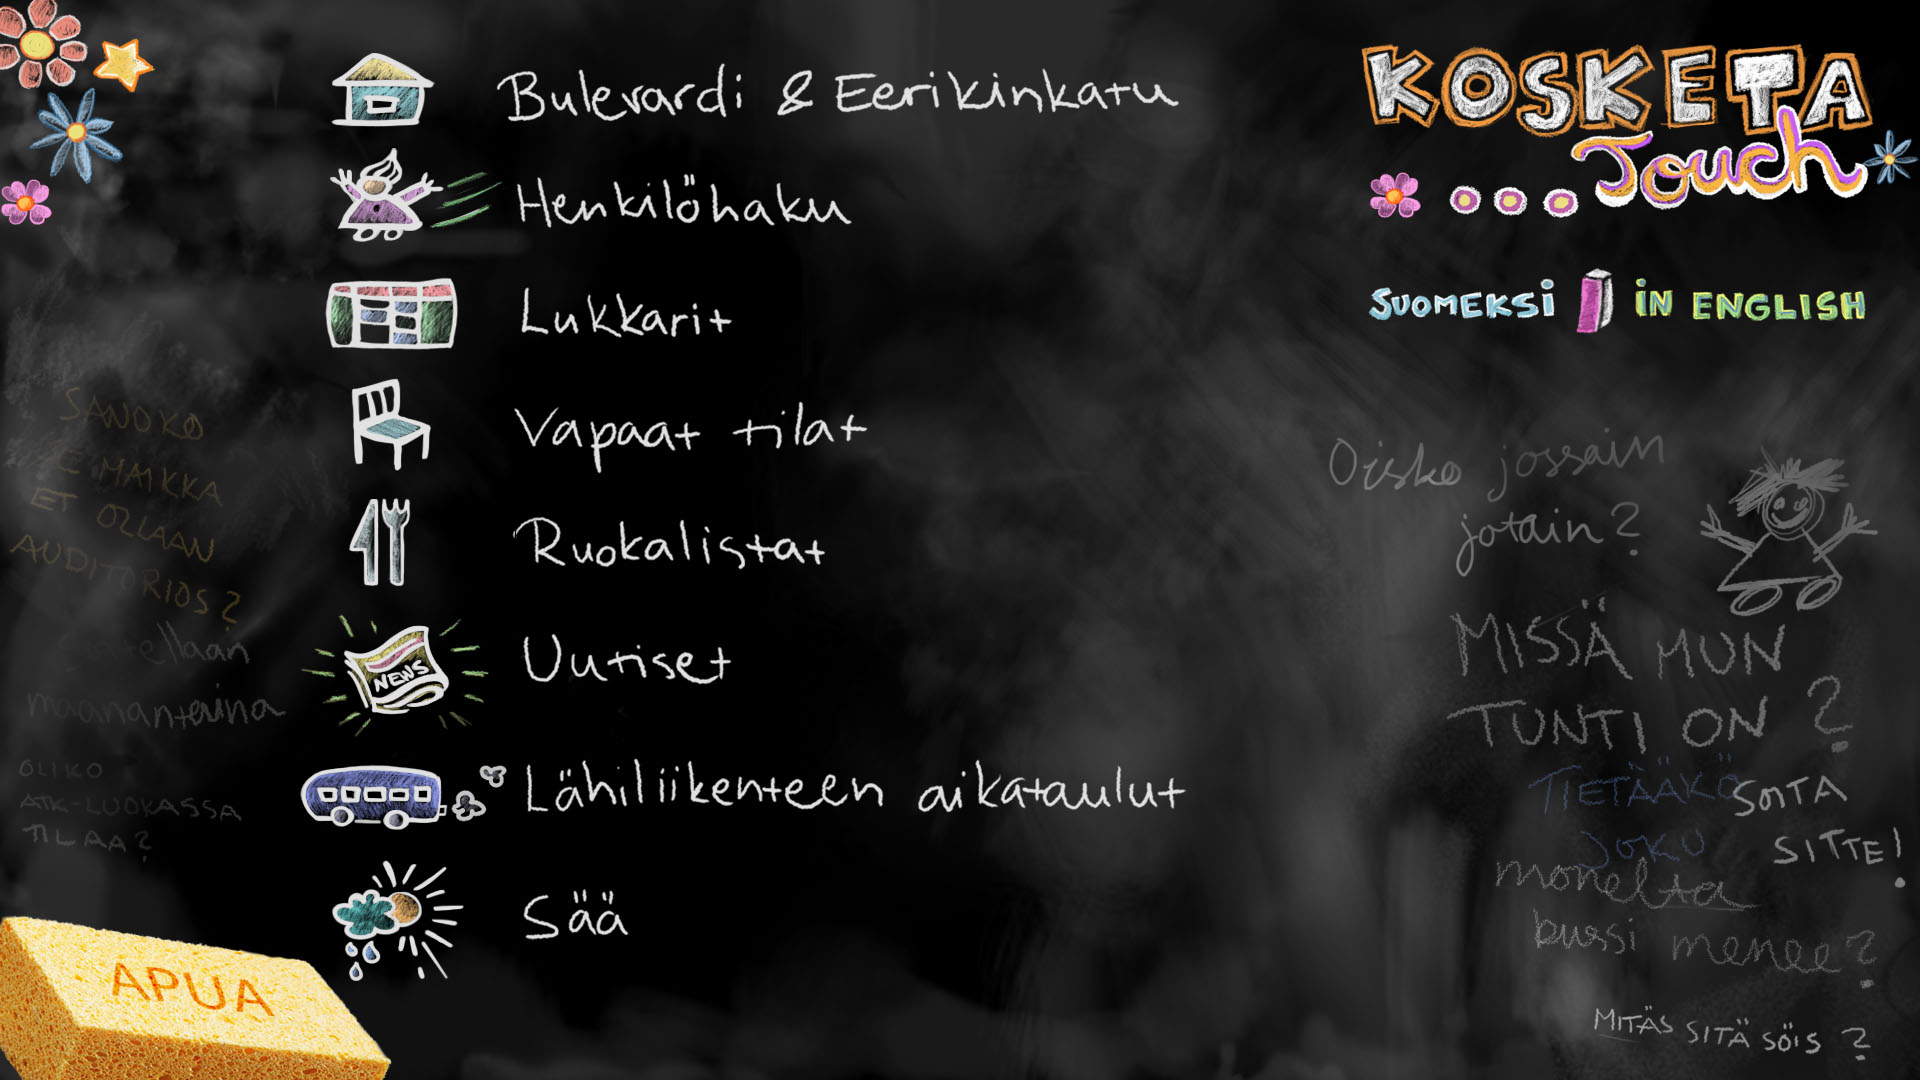 Bulevardi & Eerikinkatu
Henkilöhaku
Lukkarit
Vapaat tilat
Ruokalistat
NEWS
Uutiset
Lähiliikenteen aikataulut
Sää
APUA
KOSKETA
Touch
SUOMEKSI
IN ENGLISH
SANOKO
E MAIKKA
ET OLLAAN
AUDITORIOS?
maanantaina
OLIKO
ATK-LUOKASSA
TILAA?
Oisko jossain
jotain?
MISSÄ MUN
TUNTI ON?
TIETÄÄKÖ
JOKU
SOITA
SITTE!
monelta
bussi menee?
MITÄS SITÄ SÖIS?